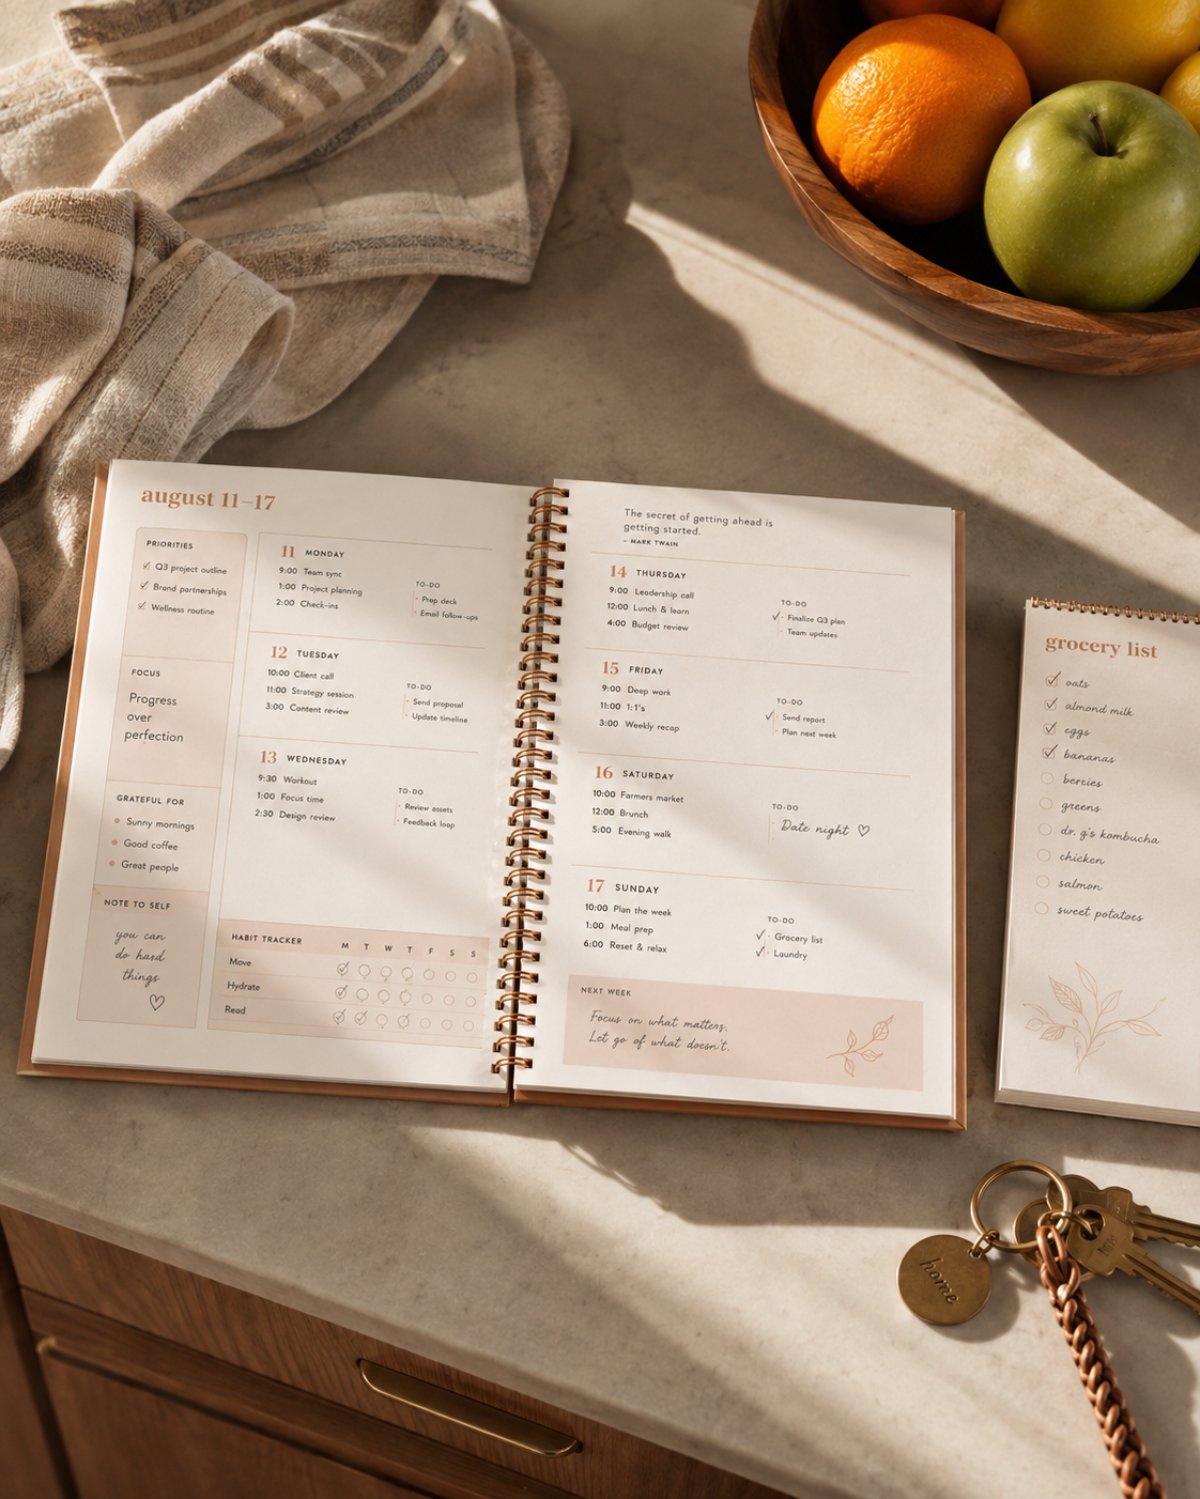 august 11–17
PRIORITIES
Q3 project outline
Brand partnerships
Wellness routine
FOCUS
Progress
over
perfection
GRATEFUL FOR
Sunny mornings
Good coffee
Great people
NOTE TO SELF
you can
do hard
things
11 MONDAY
9:00 Team sync
1:00 Project planning
2:00 Check-ins
TO-DO
Prep deck
Email follow-ups
12 TUESDAY
10:00 Client call
11:00 Strategy session
3:00 Content review
TO-DO
Send proposal
Update timeline
13 WEDNESDAY
9:30 Workout
1:00 Focus time
2:30 Design review
TO-DO
Review assets
Feedback loop
HABIT TRACKER M T W T F S S
Move
Hydrate
Read
The secret of getting ahead is
getting started.
– MARK TWAIN
14 THURSDAY
9:00 Leadership call
12:00 Lunch & learn
4:00 Budget review
TO-DO
Finalize Q3 plan
Team updates
15 FRIDAY
9:00 Deep work
11:00 1:1's
3:00 Weekly recap
TO-DO
Send report
Plan next week
16 SATURDAY
10:00 Farmers market
12:00 Brunch
5:00 Evening walk
TO-DO
Date night
17 SUNDAY
10:00 Plan the week
1:00 Meal prep
6:00 Reset & relax
TO-DO
Grocery list
Laundry
NEXT WEEK
Focus on what matters.
Let go of what doesn't.
grocery list
oats
almond milk
eggs
bananas
berries
greens
dr. g's kombucha
chicken
salmon
sweet potatoes
home